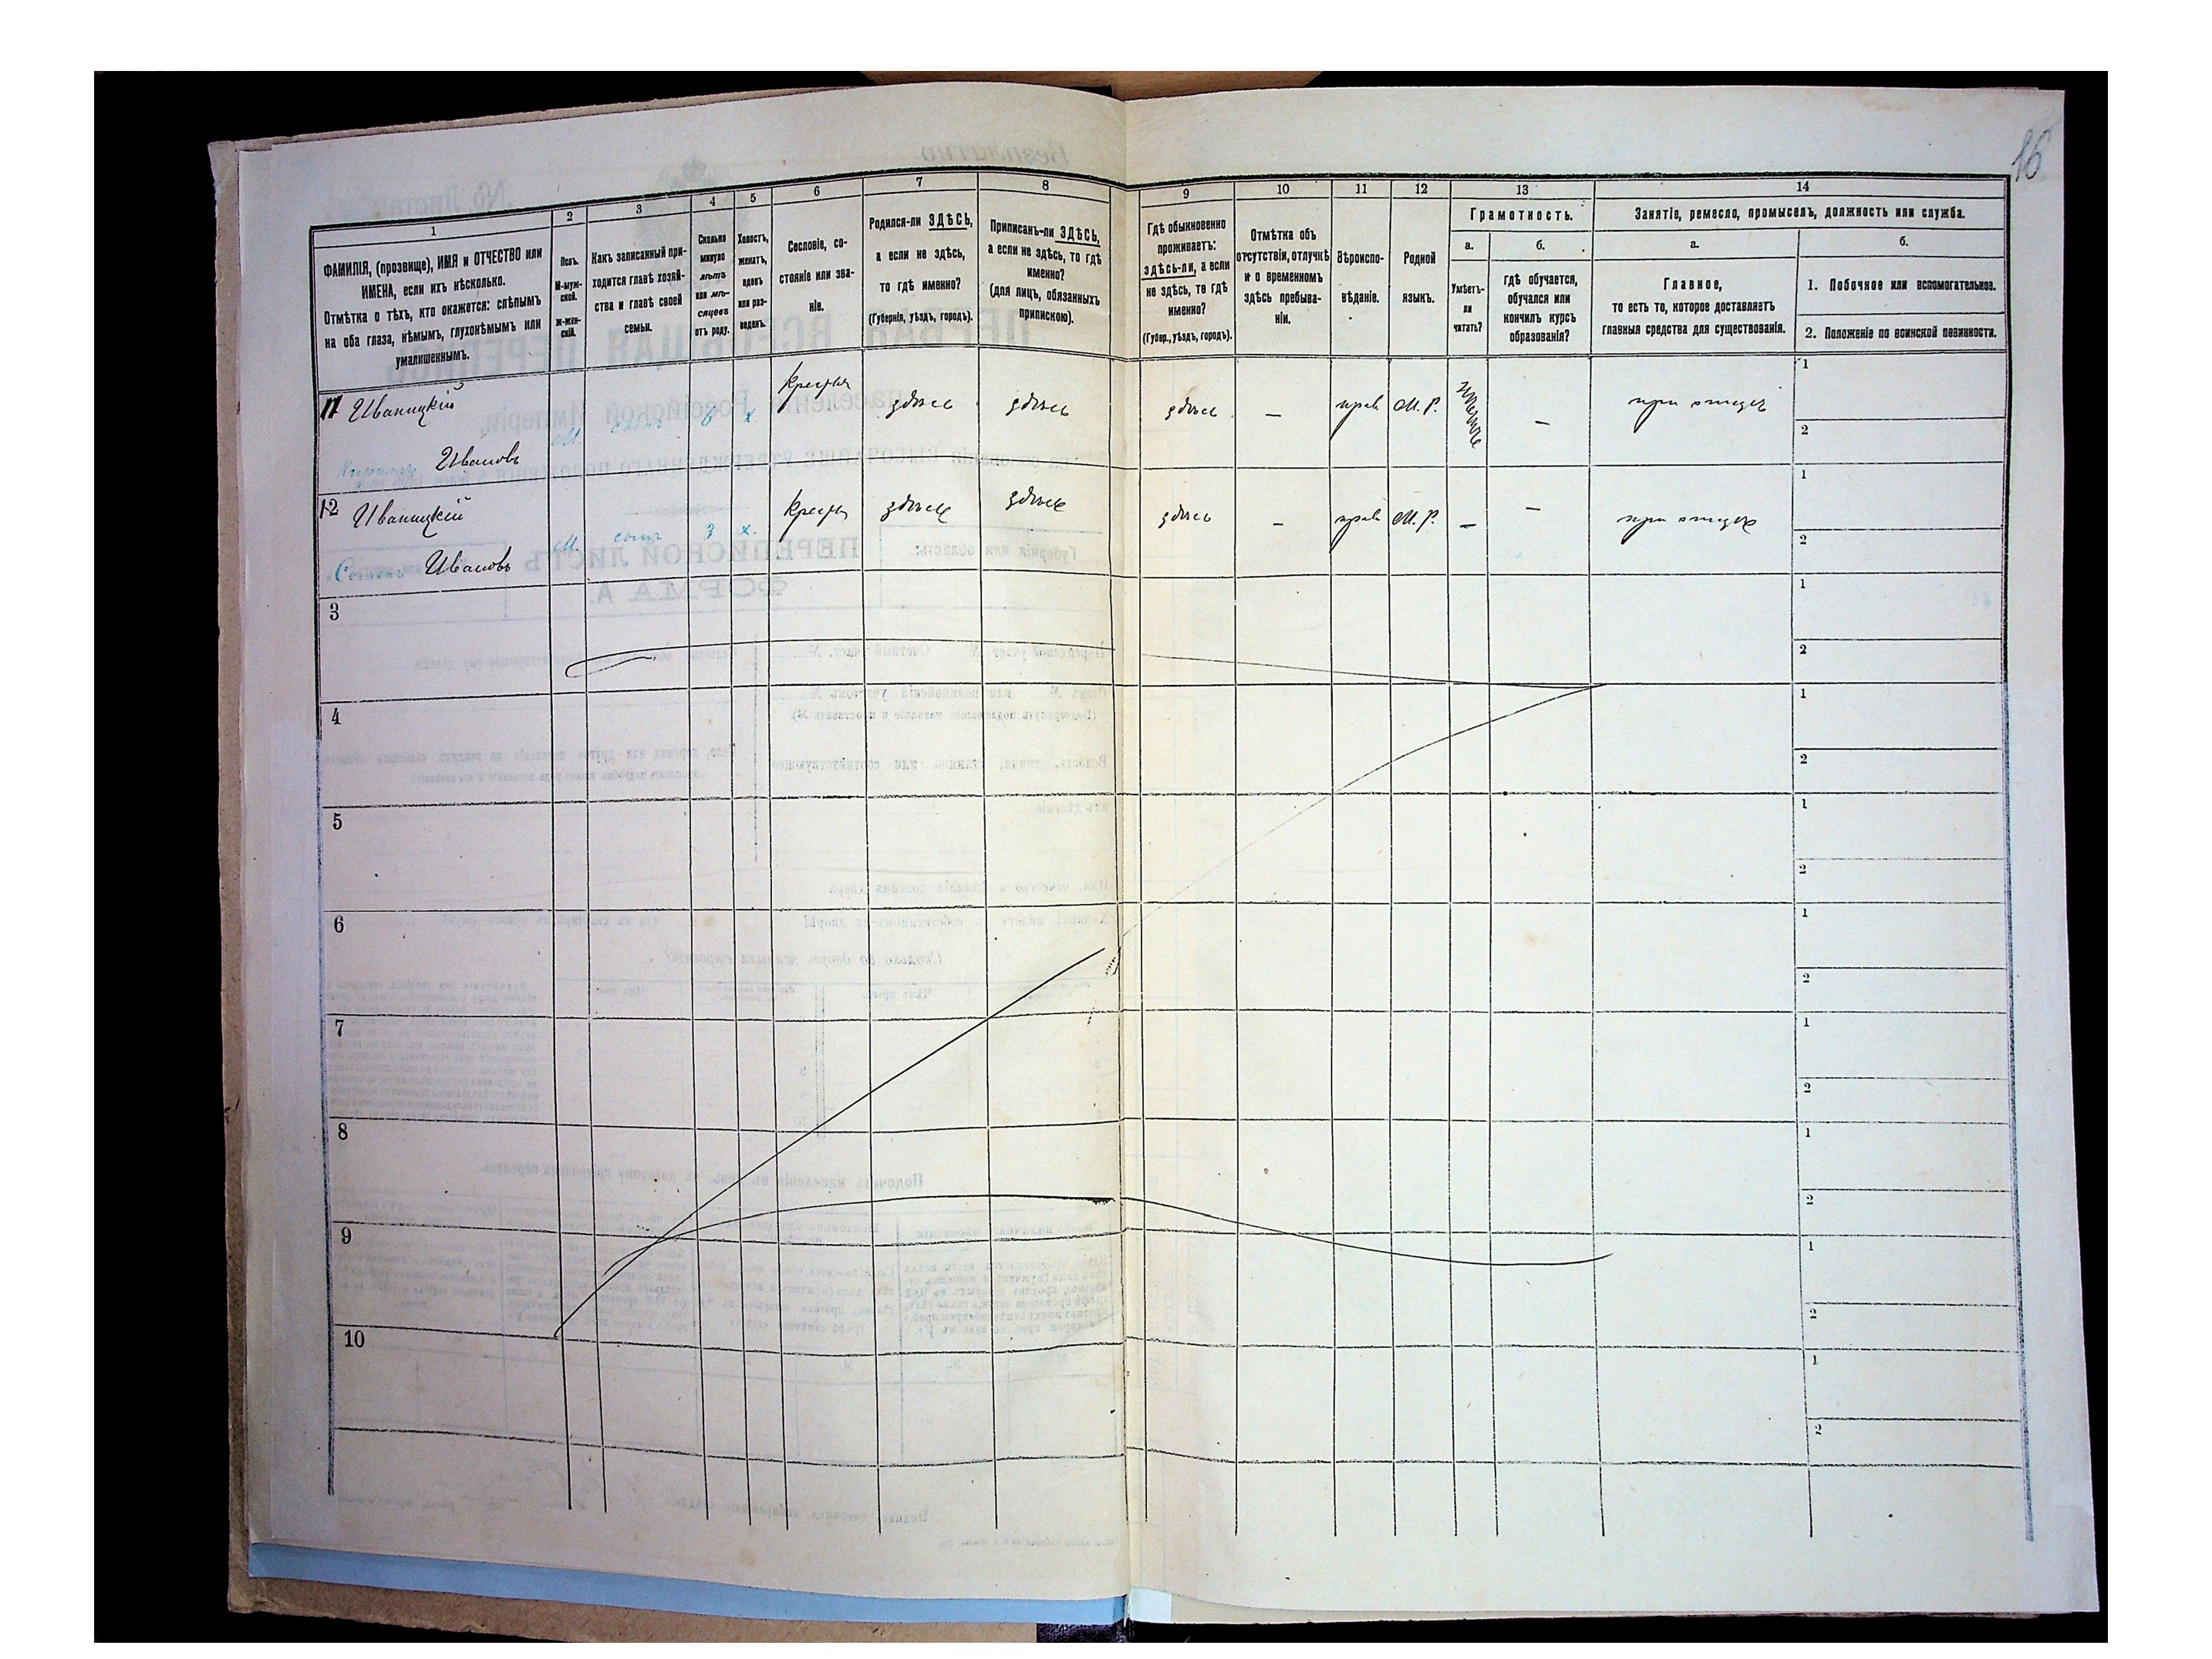 16
1
2
3
4
5
6
7
8
9
10
11
12
13
14
ФАМИЛІЯ, (прозвище), ИМЯ и ОТЧЕСТВО или
ИМЕНА, если ихъ нѣсколько.
Отмѣтка о тѣхъ, кто окажется: слѣпымъ
на оба глаза, нѣмымъ, глухонѣмымъ или
умалишеннымъ.
Полъ.
М-муж-
ской.
Ж-жен-
скій.
Какъ записанный при-
ходится главѣ хозяй-
ства и главѣ своей
семьи.
Сколько
минуло
лѣтъ
или мѣ-
сяцевъ
отъ роду.
Холостъ,
женатъ,
вдовъ
или раз-
веденъ.
Сословіе, со-
стояніе или зва-
ніе.
Родился-ли ЗДѢСЬ,
а если не здѣсь,
то гдѣ именно?
(Губернія, уѣздъ, городъ).
Приписанъ-ли ЗДѢСЬ,
а если не здѣсь, то гдѣ
именно?
(для лицъ, обязанныхъ
припискою).
Гдѣ обыкновенно
проживаетъ:
здѣсь-ли, а если
не здѣсь, то гдѣ
именно?
(Губер., уѣздъ, городъ).
Отмѣтка объ
отсутствіи, отлучкѣ
и о временномъ
здѣсь пребыва-
ніи.
Вѣроиспо-
вѣданіе.
Родной
языкъ.
Грамотность.
а.
б.
Умѣетъ-
ли
читать?
гдѣ обучается,
обучался или
кончилъ курсъ
образованія?
Занятіе, ремесло, промыселъ, должность или служба.
а.
б.
Главное,
то есть то, которое доставляетъ
главныя средства для существованія.
1. Побочное или вспомогательное.
2. Положеніе по воинской повинности.
11 Иваницкій
Ивановъ
М.
сынъ
6
х.
Крестья
здѣсь
здѣсь
здѣсь
—
прав
М. Р.
—
при отцѣ
1
2
12 Иваницкій
Семенъ Ивановъ
М.
сынъ
3
х.
Крестья
здѣсь
здѣсь
здѣсь
—
прав
М. Р.
—
—
при отцѣ
1
2
3
1
2
4
1
2
5
1
2
6
1
2
7
1
2
8
1
2
9
1
2
10
1
2